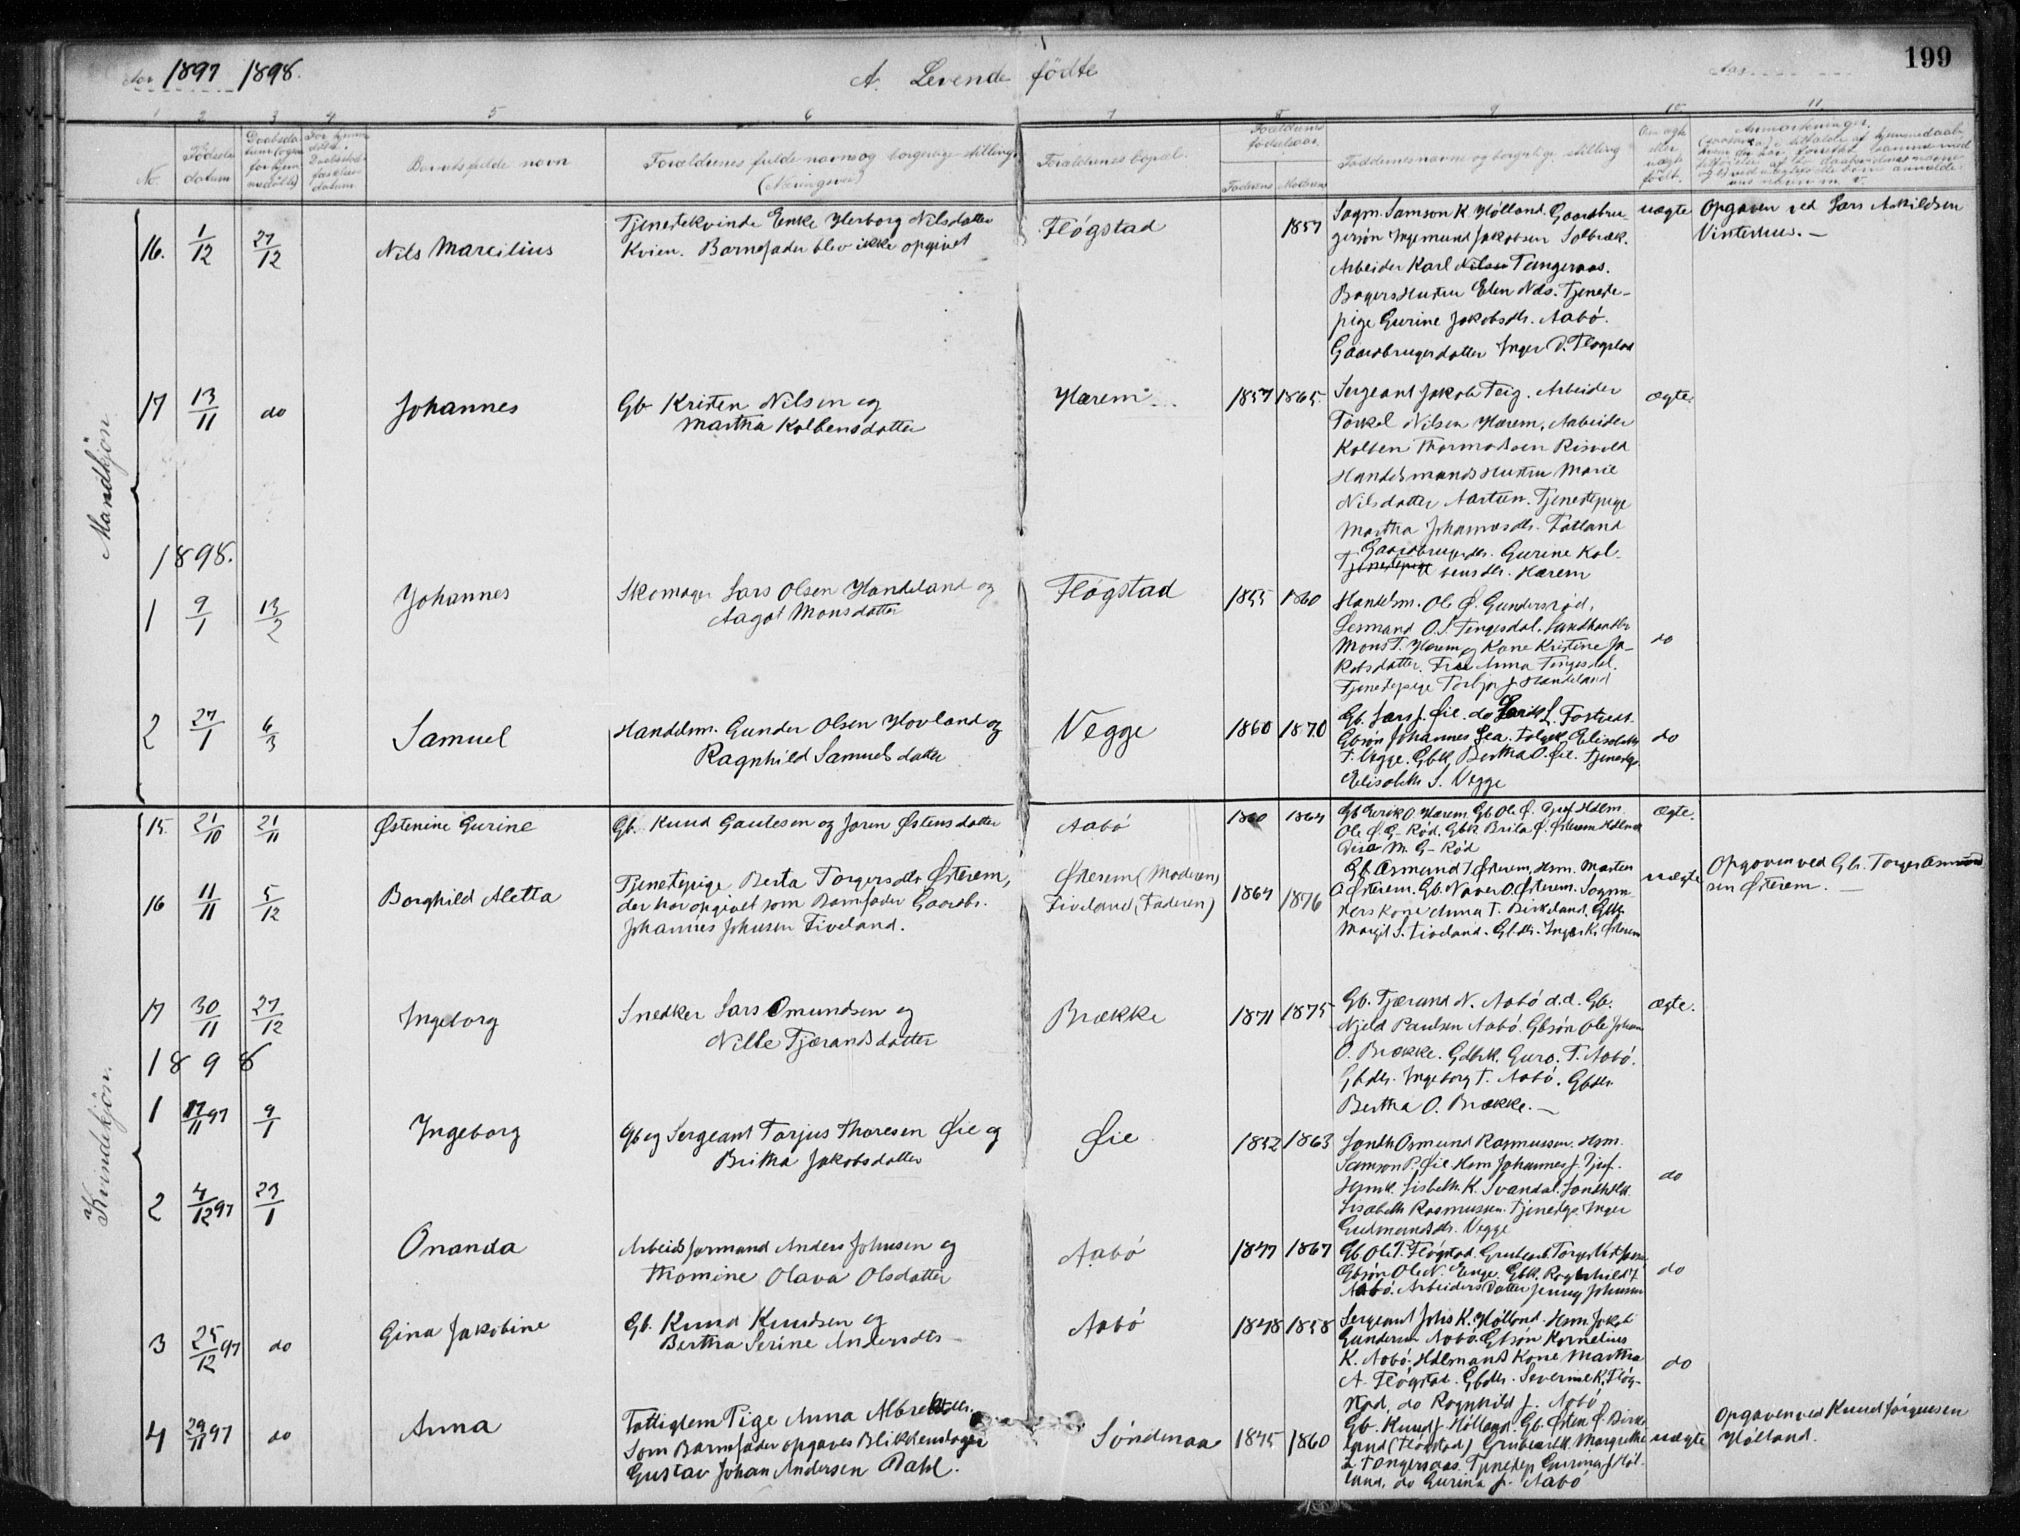 Aar 1897 1898.
A. Levende fødte
Aar
199
1 2 3 4 5 6 7 8 9 10 11
No.
Fødselsdatum
Barnets fulde navn
Forældrenes fulde navne og borgerlige stilling
(Næringsvei)
Forældrenes bopæl.
Forældrenes fødselsaar
Faderens Moderens
Faddernes navne og borgerlige stilling
Om ægte eller uægte født.
Anmærkninger.
Mandkjøn
16. 1/12 27/12 Nils Marcilius
Tjenestekvinde Enke Herborg Nilsdatter
Kvien. Barnefader blev ikke opgivet
Fløgstad
1857
Sagm. Samson K. Hølland. Gaardbru-
gersøn Ingemund Jakobsen Solbræk.
Arbeider Karl Nilsen Tangeraas.
Bagers Hustru Elen Nils. Tjeneste-
pige Gurine Jakobsdtr. Aabø.
Gaardbrugerdatter Inger D. Fløgstad
uægte
Opgaven ved Lars Askildsen
Vinterhus. —
17 13/11 do Johannes
Gb Kristen Nilsen og
Martha Kolbensdatter
Hærem
1857 1865
Sergeant Jakob Teig. Arbeider
Torkel Nilsen Hærem, Arbeider
Kolben Thormodsen Risvold
Handelsmands Hustru Marie
Nilsdatter Aartun. Tjenestepige
Martha Johannesdtr. Fatland
Gaardbrugerdtr. Gurine Kol-
Tjenestepige bensdtr. Hærem
ægte
1898.
1 9/1 13/2 Johannes
Skomager Lars Olsen Handeland og
Aagot Monsdatter
Fløgstad
1855 1860
Handelsm. Ole Ø. Gundersrød,
Lensmand O. S. Tengesdal. Landhandler
Mons T. Hærem og Kone Kristine Ja-
kobsdatter. Frue Anna Tengesdal.
Tjenestepige Torbjør J Handeland
do
2 27/1 6/3 Samuel
Handelsm. Gunder Olsen Hovland og
Ragnhild Samuelsdatter
Vegge
1860 1870
Gb. Lars J. Øie. do Lars L. Fostveit.
Gbsøn Johannes Lea. Elisabeth
T. Vegge. Gbk Bertha O. Øie. Tjenestepi.
Elisabeth S. Vegge
do
Kvindekjøn.
15. 21/10 21/11 Østenine Gurine
Gb. Knud Gautesen og Joren Østensdatter
Aabø
1860 1864
Gb Eirik O. Hærem. Gb Ole Ø. Tjuf Hdlm.
Ole Ø. G- Rød. Gbk Brita Ø. Østerem Hdlmk
M. G- Rød
ægte.
16 11/11 5/12 Borghild Aletta
Tjenestepige Berta Torgersdtr Østerem,
der har opgivet som Barnefader Gaardbr.
Johannes Johnsen Fiveland.
Østerem (Moderen)
Fiveland (Faderen)
1864 1876
Gb. Asmund T Østerem, Hsm. Morten
O Østerem. Gb. Naver O. Østerem. Sagm-
ders Kone Anna T. Birkeland, Gbk.
Margit S. Fiveland. Gbdtr. Inger K. Østerem
uægte
Opgaven ved Gb. Torger Asmund-
sen Østerem. —
17 30/11 27/12 Ingeborg
Snedker Lars Omundsen og
Nille Tjærandsdatter
Brække
1871 1875
Gb. Tjærand N. Aabø d.d. Gb.
Njeld Paulsen Aabø. Gbsøn Ole Johan
O. Brække. Gdbrk. Guro. T. Aabø.
Gbdtr. Ingeborg T. Aabø. Gbdtr.
Bertha O. Brække. —
ægte.
1898
1 17/11 97 9/1 Ingeborg
Gb og Sergeant Torjus Thoresen Øie og
Britha Jakobsdatter
Øie
1852 1863
Landh Osmund Rasmussen. Hsm.
Samson P. Øie Hsm Johannes J. Tjuf.
Hsmk. Lisbeth K. Svandal. Landhk.
Lisabeth Rasmussen. Tjenestpi. Inger
Gudmundsdtr. Vegge
do
2 4/12 97 23/1 Onanda
Arbeidsformand Anders Johnsen og
Thomine Olava Olsdatter
Aabø
1847 1867
Gb. Ole P. Fløgstad. Grubearb. Torger
Gbsøn Ole N. Enge. Gbk. Ragnhild T
Aabø. Arbeiders Datter Jenny Johnsen
do
3 25/12 97 do Gina Jakobine
Gb. Knud Knudsen og
Bertha Serine Andersdtr
Aabø
1848 1858
Sergeant Johs K. Hølland. Hsm. Jakob
Gundersen Aabø. Gbsøn Kornelius
K. Aabø. Hdlmands Kone Martha
A. Fløgstad. Gbdtr. Severine K. Fløg-
stad, do Ragnhild J. Aabø
do
4 29/11 97 do Anna
Fattiglem Pige Anna Albretsdtr.
Som Barnefader opgaves Blikkenslager
Gustav Johan Andersen Dahl.
Søndenaa
1845 1860
Gb. Knud J. Hølland. Gb. Østen Ø. Birke-
land (Fløgstad) Grubearbk. Margrethe
L. Tangeraas. Tjenestep Gurina J Høl-
land, do Gurina J. Aabø
uægte
Opgaven ved Knud Jørgensen
Hølland.